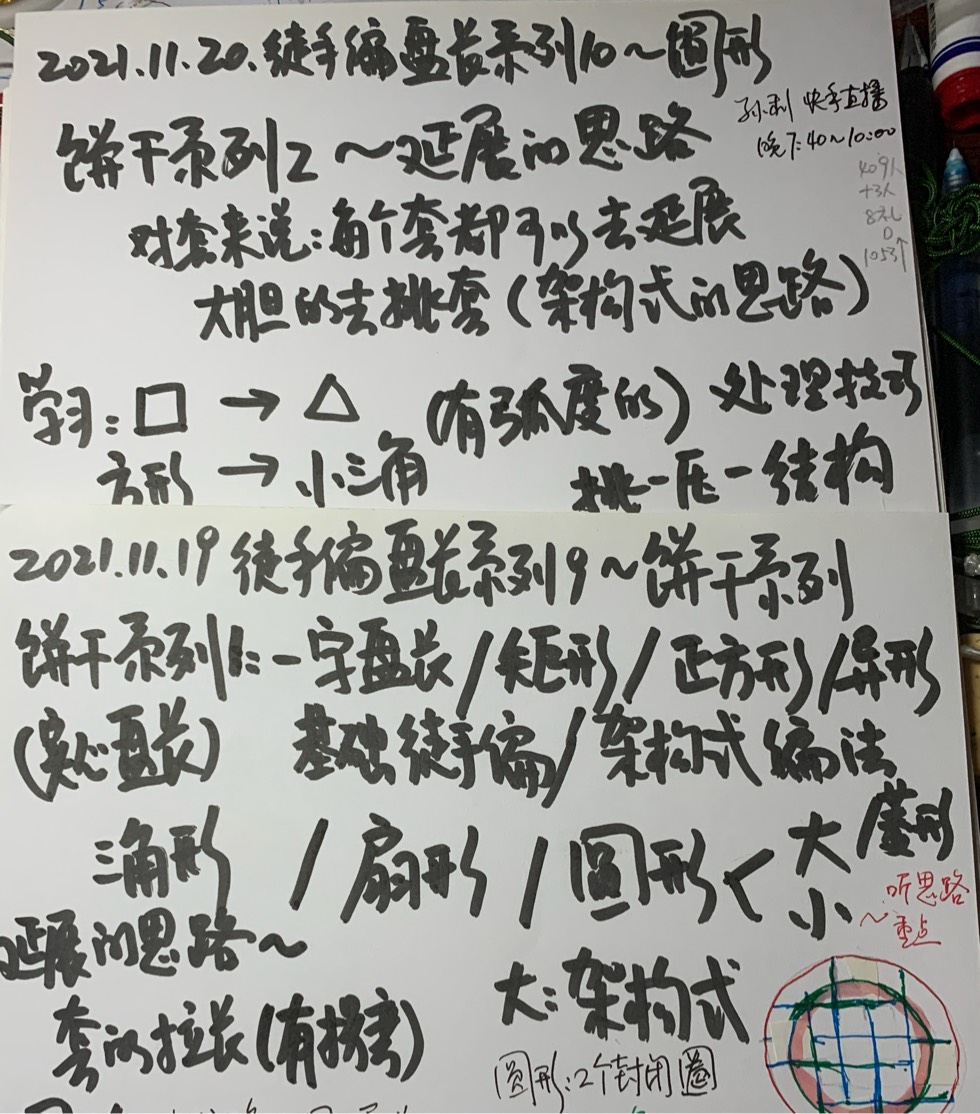 2021.11.20.徒手编盘长系列10～圆形
孙利 快手直播
晚7:40～10:00
饼干系列2～延展的思路
409人
+3人
对套来说:每个套都可以去延展
大胆的去挑套(架构式的思路)
学习:□→△ (有弧度的) 处理技巧
方形→小三角 挑一压一结构
2021.11.19徒手编盘长系列9～饼干系列
饼干系列1:一字盘长/矩形/正方形/异形
(实心盘长) 基础徒手编/架构式编法
三角形/扇形/圆形<大 小/菱形
听思路
～重点
延展的思路～
套的拉长(有拐弯)
大:架构式
圆形:2个封闭圈